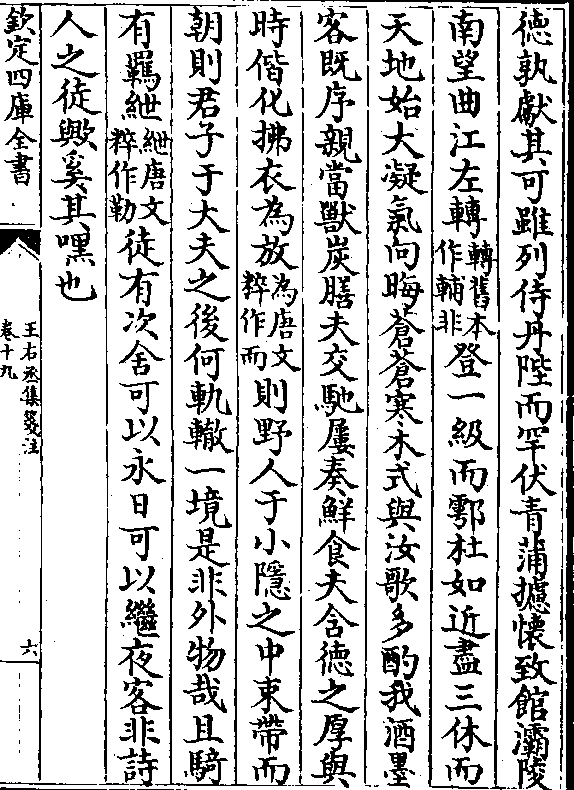 德孰獻其可雖列侍丹陛而罕伏青蒲攄懷致館灞陵
南望曲江左轉轉舊本作輔非登一級而鄠杜如近盡三休而
天地始大凝氣向晦蒼蒼寒木式與汝歌多酌我酒墨
客既序親當獸炭膳夫交馳屢奏鮮食夫含德之厚與
時偕化拂衣為放為唐文粹作而則野人于小隱之中束帶而
朝則君子于大夫之後何軌轍一境是非外物哉且騎
有羈紲紲唐文粹作勒徒有次舍可以永日可以繼夜客非詩
人之徒歟奚其嘿也
欽定四庫全書
王右丞集箋注
卷十九
六